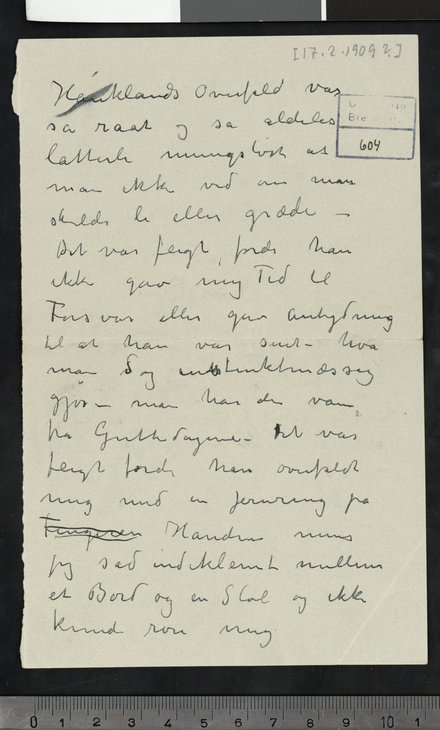 [17.2.1909?]
Hauklands Overfald var
så raat og så aldeles
604
latterli meningsløst at
man ikke ved om man
skulde le eller græde –
Det var feigt, fordi han
ikke gav mig Tid til
Forsvar eller gav antydning
til at han var sint – hva
man dog instinktmæssig
gjør – man har den vane
fra Guttedagene – Det var
feigt fordi han overfaldt
mig med en Jernring på
Fingeren Handen mens
jeg sad indeklemt mellem
et Bord og en Stol og ikke
kunde røre mig
0 1 2 3 4 5 6 7 8 9 10 1